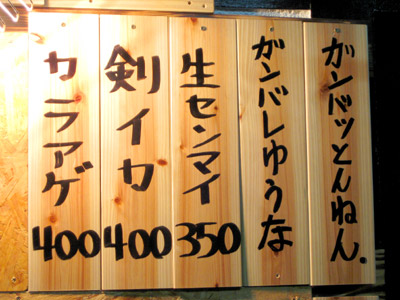 ガンバッとんねん.
ガンバレゆうな
生センマイ 350
剣イカ 400
カラアゲ 400